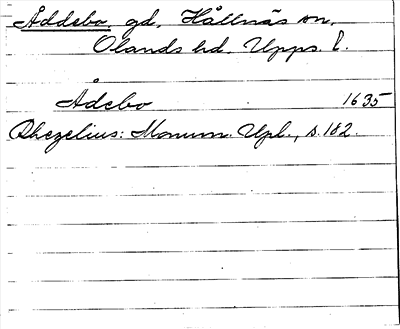 Åddebo, gd, Hållnäs sn,
Olands hd. Upps. l.
Ådebo 1635
Rhezelius: Monum. Upl., s. 182.